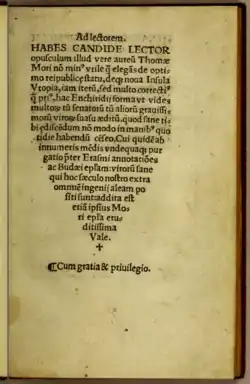 Ad lectorem.
HABES CANDIDE LECTOR
opusculum illud vere aureũ Thomæ
Mori nõ minꝰ vtile q̃ elegãs de optimo
reipublicę statu, deqȝ noua Insula
Vtopia, iam iterũ, sed multo correctiꝰ
q̃ priꝰ, hac Enchiridij forma vt vides
multorũ tũ senatorũ tũ aliorũ grauissimorũ
virorũ suasu æditũ. quod sane tibi
ędiscẽdum nõ modo in manibꝰ quotidie
habendũ cẽseo. Cui quidẽ ab
innumeris mẽdis vndequaqȝ purgatio
p̃ter Erasmi annotatiões
ac Budæi epl̃am: virorũ sane
qui hoc sæculo nostro extra
omnẽ ingenij aleam positi
sunt: addita est
etiã ipsius Mori
epl̃a eruditissima
Vale.
✝
¶ Cum gratia & priuilegio.